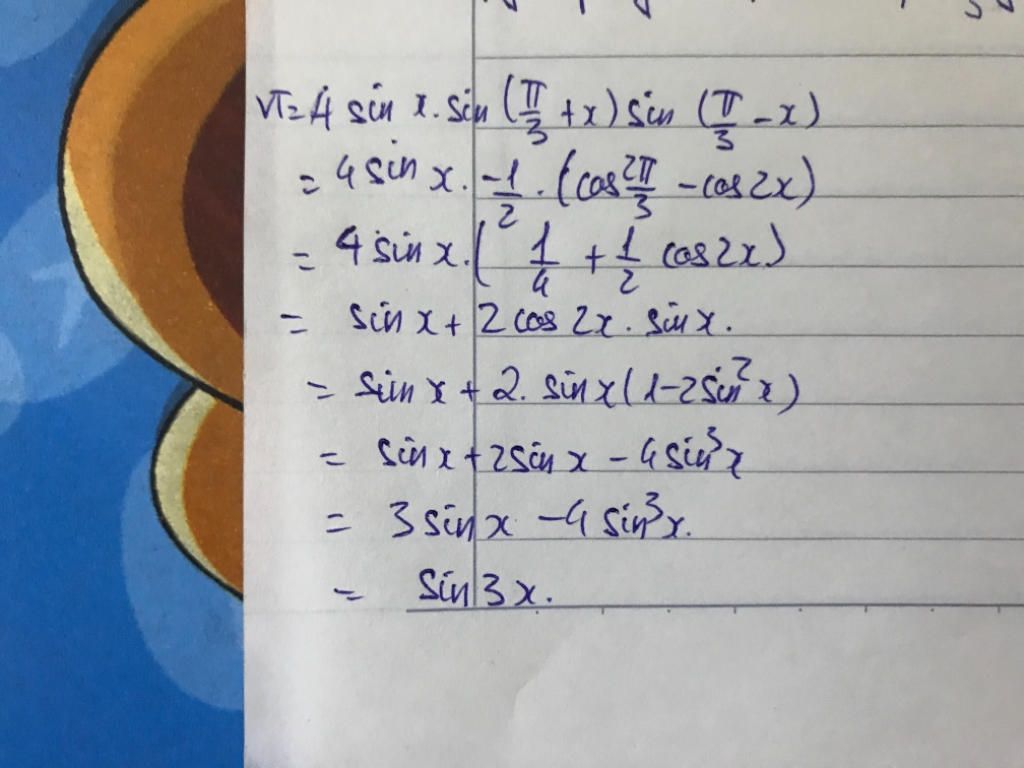 VT = 4 sin x . sin (π/3 + x) sin (π/3 - x)
= 4 sin x . -1/2 . (cos 2π/3 - cos 2x)
= 4 sin x . ( 1/4 + 1/2 cos 2x)
= sin x + 2 cos 2x . sin x .
= sin x + 2 . sin x (1 - 2 sin² x)
= sin x + 2 sin x - 4 sin³ x
= 3 sin x - 4 sin³ x .
= sin 3x .